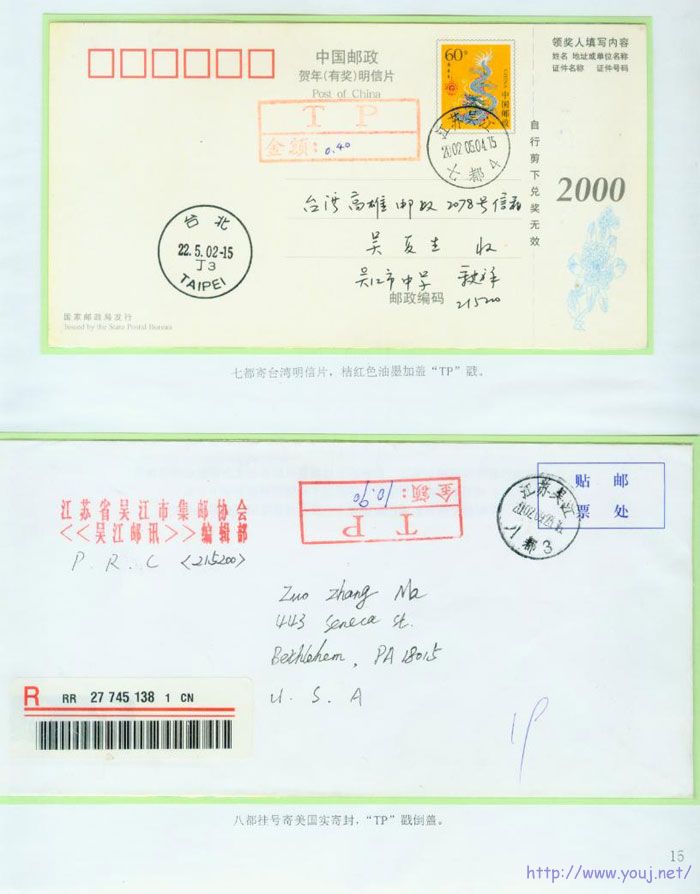 中国邮政
贺年(有奖)明信片
Post of China
60分
中国邮政
CHINA
领奖人填写内容
姓名 地址或单位名称
证件名称 证件号码
自行剪下兑奖无效
2000
T P
金额: 0.40
江苏吴江
2002.05.04.15
七都 4
台湾高雄邮政2078号信箱
吴夏圭 收
吴江市中学
邮政编码 215200
台北
22.5.02-15
J3
TAIPEI
国家邮政局发行
Issued by the State Postal Bureau
七都寄台湾明信片，桔红色油墨加盖“TP”戳。
江苏省吴江市集邮协会
<<吴江邮讯>>编辑部
P. R. C <215200>
T P
金额: 10.90
江苏吴江
八都 3
贴邮
票处
Zuo Zhang Ma
443 Seneca St.
Bethlehem, PA 18015
U. S. A
R RR 27 745 138 1 CN
八都挂号寄美国实寄封，“TP”戳倒盖。
15
http://www.youj.net/